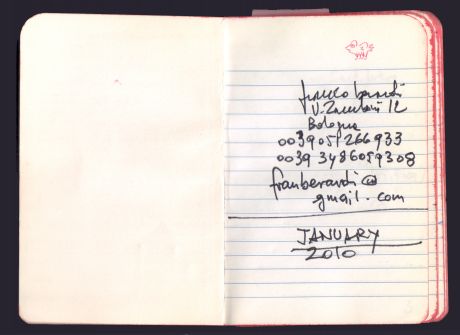 franco berardi
V. Zamboni 12
Bologna
0039051266933
0039 3486059308
franberardi@
gmail.com
JANUARY
2010